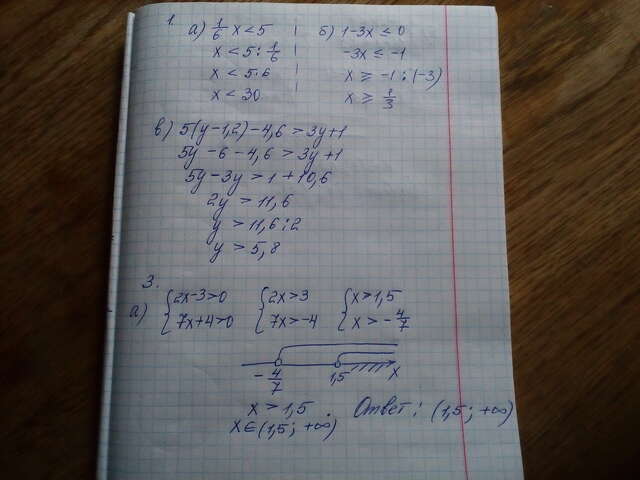 1. а) 1/6 x < 5
x < 5 : 1/6
x < 5·6
x < 30
б) 1-3x ≤ 0
-3x ≤ -1
x ≥ -1 : (-3)
x ≥ 1/3
в) 5(y-1,2)-4,6 > 3y+1
5y-6-4,6 > 3y+1
5y-3y > 1+10,6
2y > 11,6
y > 11,6 : 2
y > 5,8
3.
а) { 2x-3>0 { 2x>3 { x>1,5
{ 7x+4>0 { 7x>-4 { x>-4/7
-4/7 1,5 x
x > 1,5. Ответ: (1,5; +∞)
x∈(1,5; +∞)